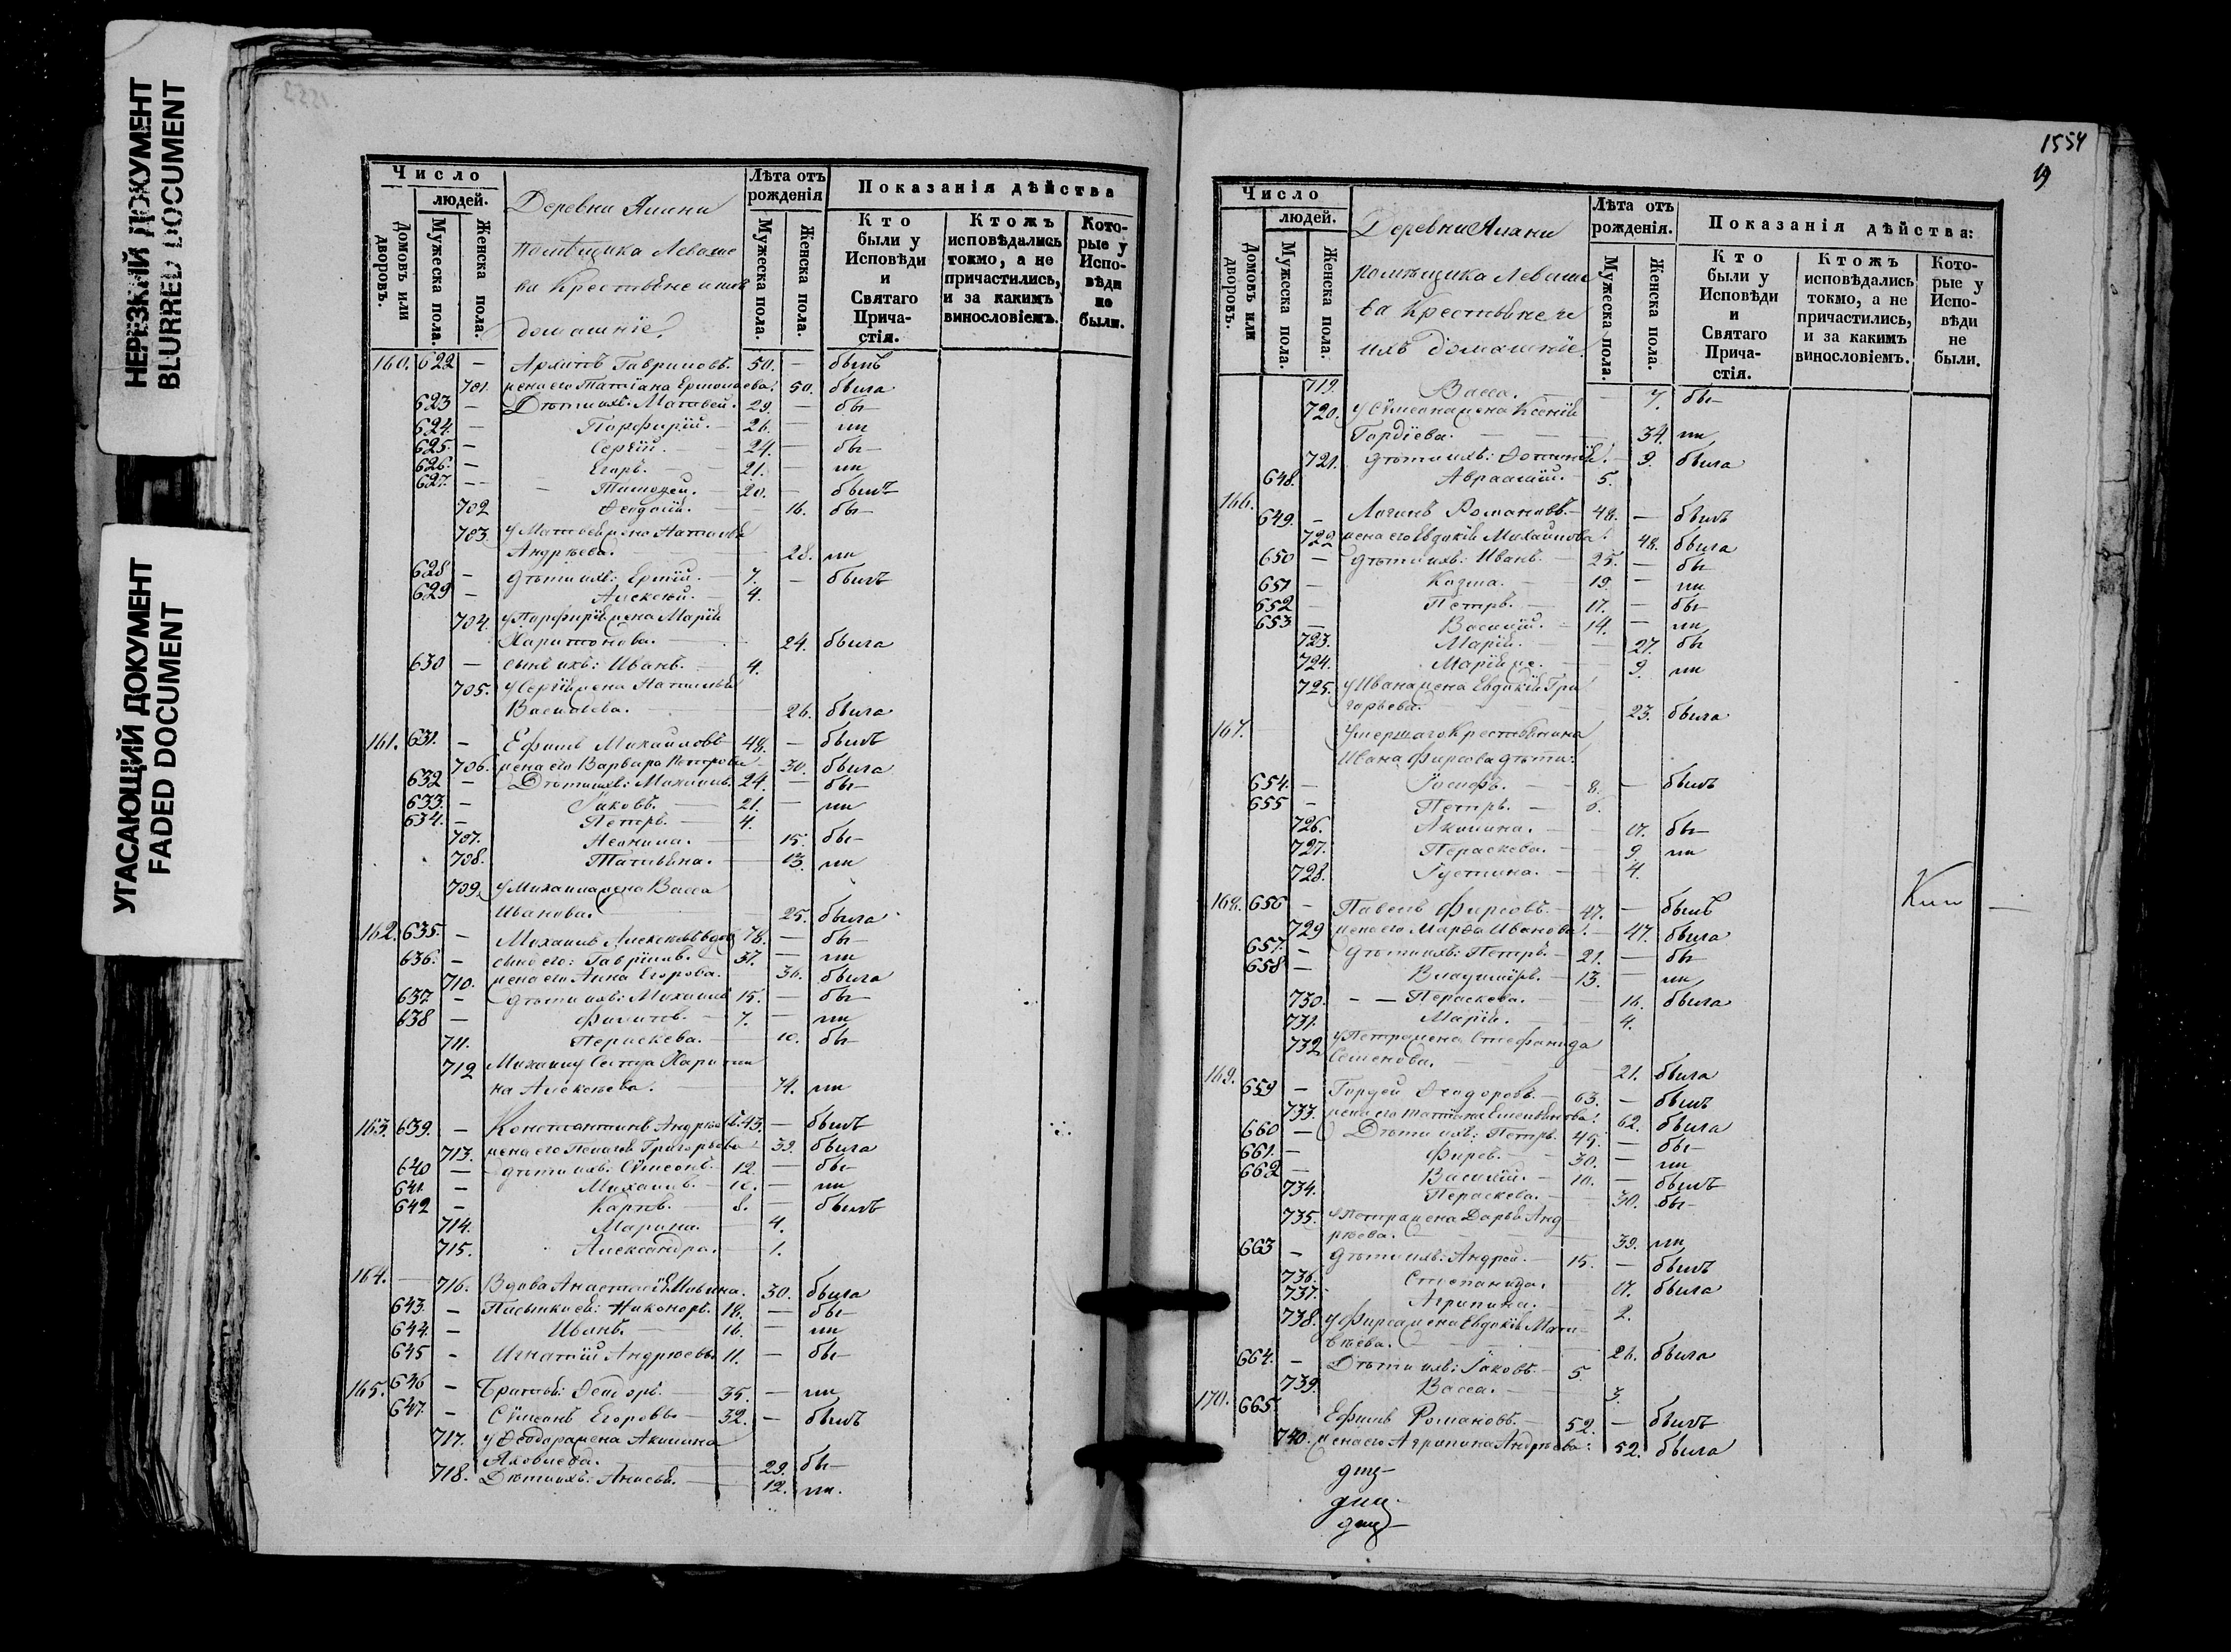 НЕРЕЗКИЙ ДОКУМЕНТ
BLURRED DOCUMENT
УГАСАЮЩИЙ ДОКУМЕНТ
FADED DOCUMENT
Число
людей.
Домовъ или дворовъ.
Мужеска пола.
Женска пола.
Деревни
помѣщика Леваше
ва Крестьяне и ихъ
домашніе
Лѣта отъ рожденія
Мужеска пола.
Женска пола.
Показанія дѣйства
Кто были у Исповѣди и Святаго Причастія.
Ктожъ исповѣдались токмо, а не причастились, и за какимъ винословіемъ.
Которые у Исповѣди не были.
160. 622 — Архипъ Гавриловъ. 50. — былъ
701. жена его Татіана Ермолаева. 50. была
623 — Дѣти ихъ: Матвей. 29. — бы—
624. — Порфирій. — 26. — ли
625. — Сергій. — 24. — бы—
626. — Егоръ. — 21. — ли
627. — Тимофей. — 20. — былъ
702 Ѳедосія. — 16. бы—
703. у Матвея жена Наталья
Андрѣева. — 28. ли
628 — дѣти ихъ: — 7. — былъ
629 — Алексѣй. — 4.
704. у Порфирія жена Марія
Харитонова. — 24. была
630 — сынъ ихъ: Иванъ. — 4.
705. у Сергія жена Наталья
Васильева. — 26. была
161. 631. — Ефимъ Михайловъ 48. — былъ
706. жена его Варвара Петрова 30. была
632 — Дѣти ихъ: Михаилъ. 24. — бы—
633. — Іаковъ. — 21. — ли
634. — Петръ. — 4.
707. Неонила. — 15. бы—
708. Татьяна. — 13. ли
709. у Михаила жена Васса
Иванова. — 25. была
162. 635. — Михаилъ Алексѣевъ вдовъ 78. — бы—
636. — сынъ его: Гавріилъ. — 37. — ли
710. жена его Анна Егорова. 36. была
637 — дѣти ихъ: Михаилъ 15. — бы—
638 — Филипъ. — 7. — ли
711. Параскева. — 10. бы—
712 Михаилу сестра Харити
на Алексѣева. — 74. ли
163. 639. — Константинъ Андрѣевъ. 43. — былъ
713. жена его Пелагея Григорьева 39. была
640 — дѣти ихъ: Сѵмеонъ. — 12. — бы—
641. — Михаилъ. — 10. — ли
642 — Карпъ. — 8. — былъ
714. Марина. — 4.
715. Александра. — 1.
164. — 716. Вдова Анастасія Ильина. 30. была
643. — Пасынки ея: Никоноръ. 18. — бы—
644. — Иванъ. — 16. — ли
645 — Игнатій Андрѣевъ 11. — бы—
165. 646 — Братья: Ѳедоръ. — 35. — ли
647. — Сѵмеонъ Егоровы — 32. — былъ
717. у Ѳеодора жена Акилина
Яковлева. — 29. бы—
718. Дѣти ихъ: — 12. ли.
1554
19
Число
людей.
Домовъ или дворовъ.
Мужеска пола.
Женска пола.
Деревни
помѣщика Леваше
ва Крестьяне и
ихъ домашніе
Лѣта отъ рожденія.
Мужеска пола.
Женска пола.
Показанія дѣйства:
Кто были у Исповѣди и Святаго Причастія.
Ктожъ исповѣдались токмо, а не причастились, и за какимъ винословіемъ.
Которые у Исповѣди не были.
719. Васса. — 7. бы—
720. у Сѵмеона жена Ксенія
Гордіева. — 34. ли
721. дѣти ихъ: — 9. была
648. Авраамій. — 5.
166. 649. — Логинъ Романовъ. — 48. — былъ
722 жена его Евдокія Михайлова. 48. была
650 — дѣти ихъ: Иванъ. — 25. — бы
651 — Козма. — 19. — ли
652 — Петръ. — 17. — бы—
653 — Василій. — 14. — ли
723. Марія. — 27. бы
724. Марія же. — 9. ли
725. у Ивана жена Евдокія Гри
горьева. — 23. была
167. Умершаго Крестьянина
Ивана Фирсова дѣти:
654. — Іосифъ. — 8. — былъ
655 — Петръ. — 6.
726. Акилина. — 17. бы—
727. Параскева. — 9. ли
728. Іустина. — 4.
168. 656 — Павелъ Фирсовъ. — 47. — былъ
729 жена его Марѳа Иванова. — 47. была
657. — дѣти ихъ: Петръ. — 21. — бы
658 — Владиміръ. — 13. — ли
730. — Параскева. — 16. была
731. Марія. — 4.
732 у Петра жена Стефанида
Семенова. — 21. была
169. 659 — Гордей Ѳеодоровъ. — 63. — былъ
733. жена его Татіана Емельянова. 62. была
660 — Дѣти ихъ: Петръ. 45. — бы—
661. — Фирсъ. — 30. — ли
662 — Василій. — 10. — былъ
734. Параскева. — 30. бы—
735. у Петра жена Дарья Анд
рѣева. — 39. ли
663 — дѣти ихъ: Андрей. — 15. — былъ
736. Степанида. 17. была
737. Агрипина. — 2.
738. у Фирса жена Евдокія Мат
вѣева. — 26. была
664. — Дѣти ихъ: Іаковъ. — 5.
739. Васса. — 3.
170. 665. Ефимъ Романовъ. — 52. — былъ
740. жена его Агрипина Андрѣева. 52. была